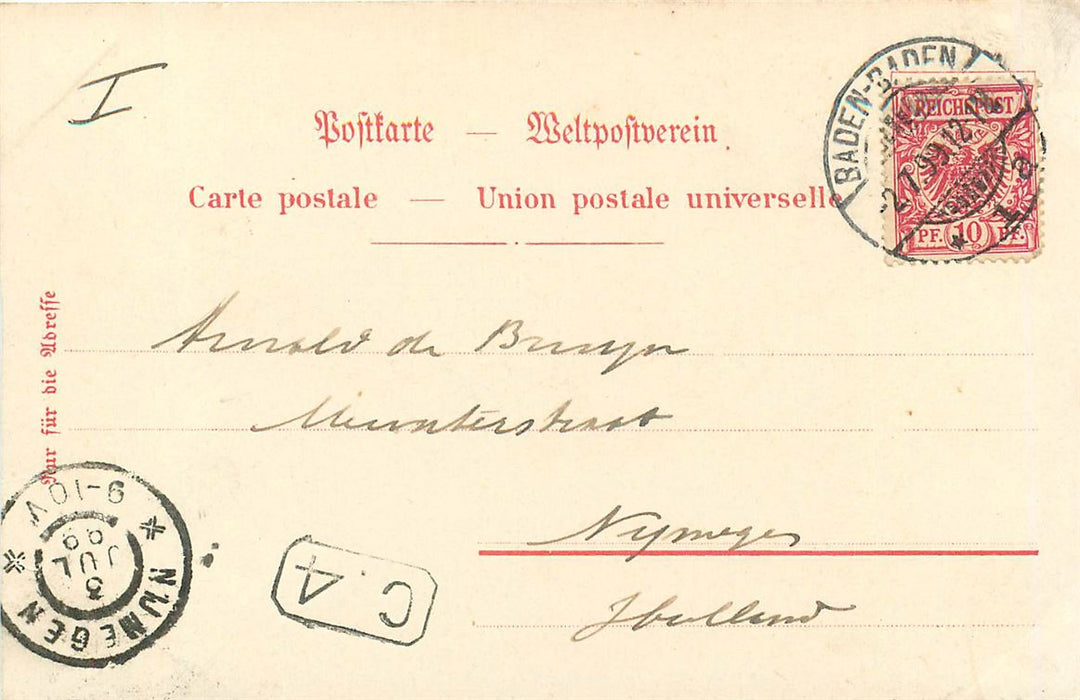 I
Postkarte — Weltpostverein
Carte postale — Union postale universelle
BADEN-BADEN
2.7.99.12-1N
* 1 a
REICHSPOST
PF. 10 PF.
Nur für die Adresse
Arnold de Bruyn
Munterstraat
Nymegen
Holland
NIJMEGEN
3
JUL
99
9-10V
C.4